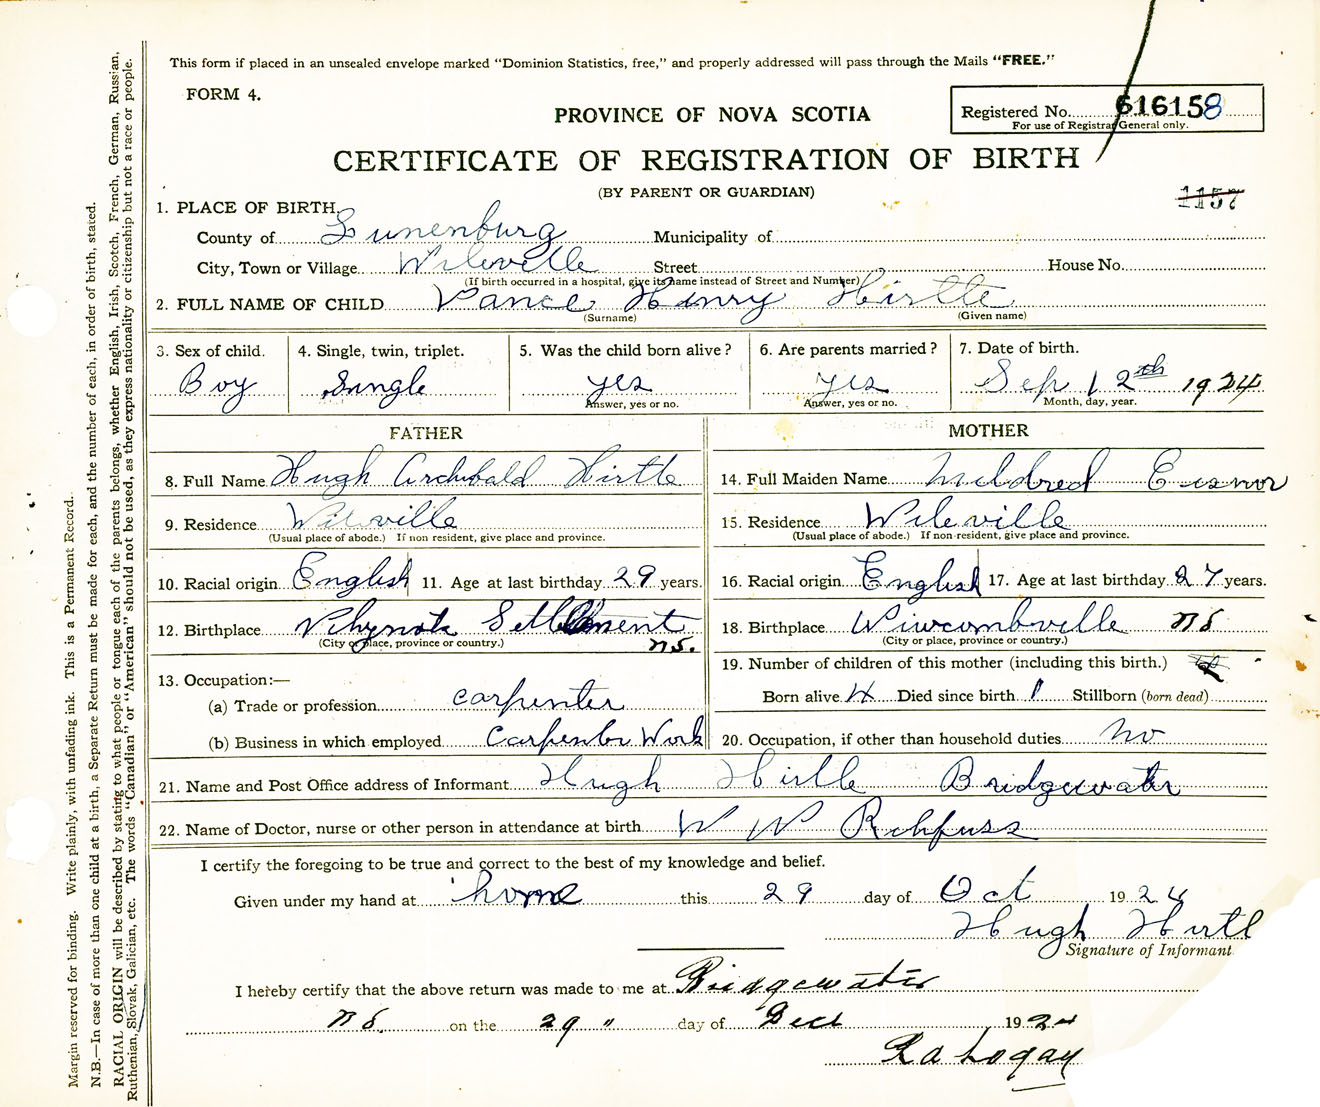 This form if placed in an unsealed envelope marked "Dominion Statistics, free," and properly addressed will pass through the Mails "FREE."
FORM 4.
PROVINCE OF NOVA SCOTIA
Registered No. 616158
For use of Registrar General only.
CERTIFICATE OF REGISTRATION OF BIRTH
(BY PARENT OR GUARDIAN)
1157
1. PLACE OF BIRTH,
County of Lunenburg Municipality of
City, Town or Village Wileville Street House No.
(If birth occurred in a hospital, give its name instead of Street and Number)
2. FULL NAME OF CHILD Vance Henry Hirtle
(Surname) (Given name)
3. Sex of child. 4. Single, twin, triplet. 5. Was the child born alive? 6. Are parents married? 7. Date of birth.
Boy Single yes yes Sep 12th 1924
Answer, yes or no. Answer, yes or no. Month, day, year.
FATHER MOTHER
8. Full Name Hugh Archibald Hirtle 14. Full Maiden Name Mildred Eisnor
9. Residence Wileville 15. Residence Wileville
(Usual place of abode.) If non resident, give place and province. (Usual place of abode.) If non-resident, give place and province.
10. Racial origin English 11. Age at last birthday 29 years. 16. Racial origin English 17. Age at last birthday 27 years.
12. Birthplace Settlement 18. Birthplace NS
(City or place, province or country.) NS. (City or place, province or country.)
19. Number of children of this mother (including this birth.)
13. Occupation:—
(a) Trade or profession carpenter Born alive 4 Died since birth 1 Stillborn (born dead)
(b) Business in which employed Carpenter Work 20. Occupation, if other than household duties No
21. Name and Post Office address of Informant Hugh Hirtle Bridgewater
22. Name of Doctor, nurse or other person in attendance at birth W W Rehfuss
I certify the foregoing to be true and correct to the best of my knowledge and belief.
Given under my hand at home this 29 day of Oct 1924
Hugh Hirtl
Signature of Informant
I hereby certify that the above return was made to me at Bridgewater
NS. on the 29 " day of Dect 1924
R a Logan
Margin reserved for binding. Write plainly, with unfading ink. This is a Permanent Record.
N.B.—In case of more than one child at a birth, a Separate Return must be made for each, and the number of each, in order of birth, stated.
RACIAL ORIGIN will be described by stating to what people or tongue each of the parents belongs, whether English, Irish, Scotch, French, German, Russian,
Ruthenian, Slovak, Galician, etc. The words "Canadian" or "American" should not be used, as they express nationality or citizenship but not a race or people.